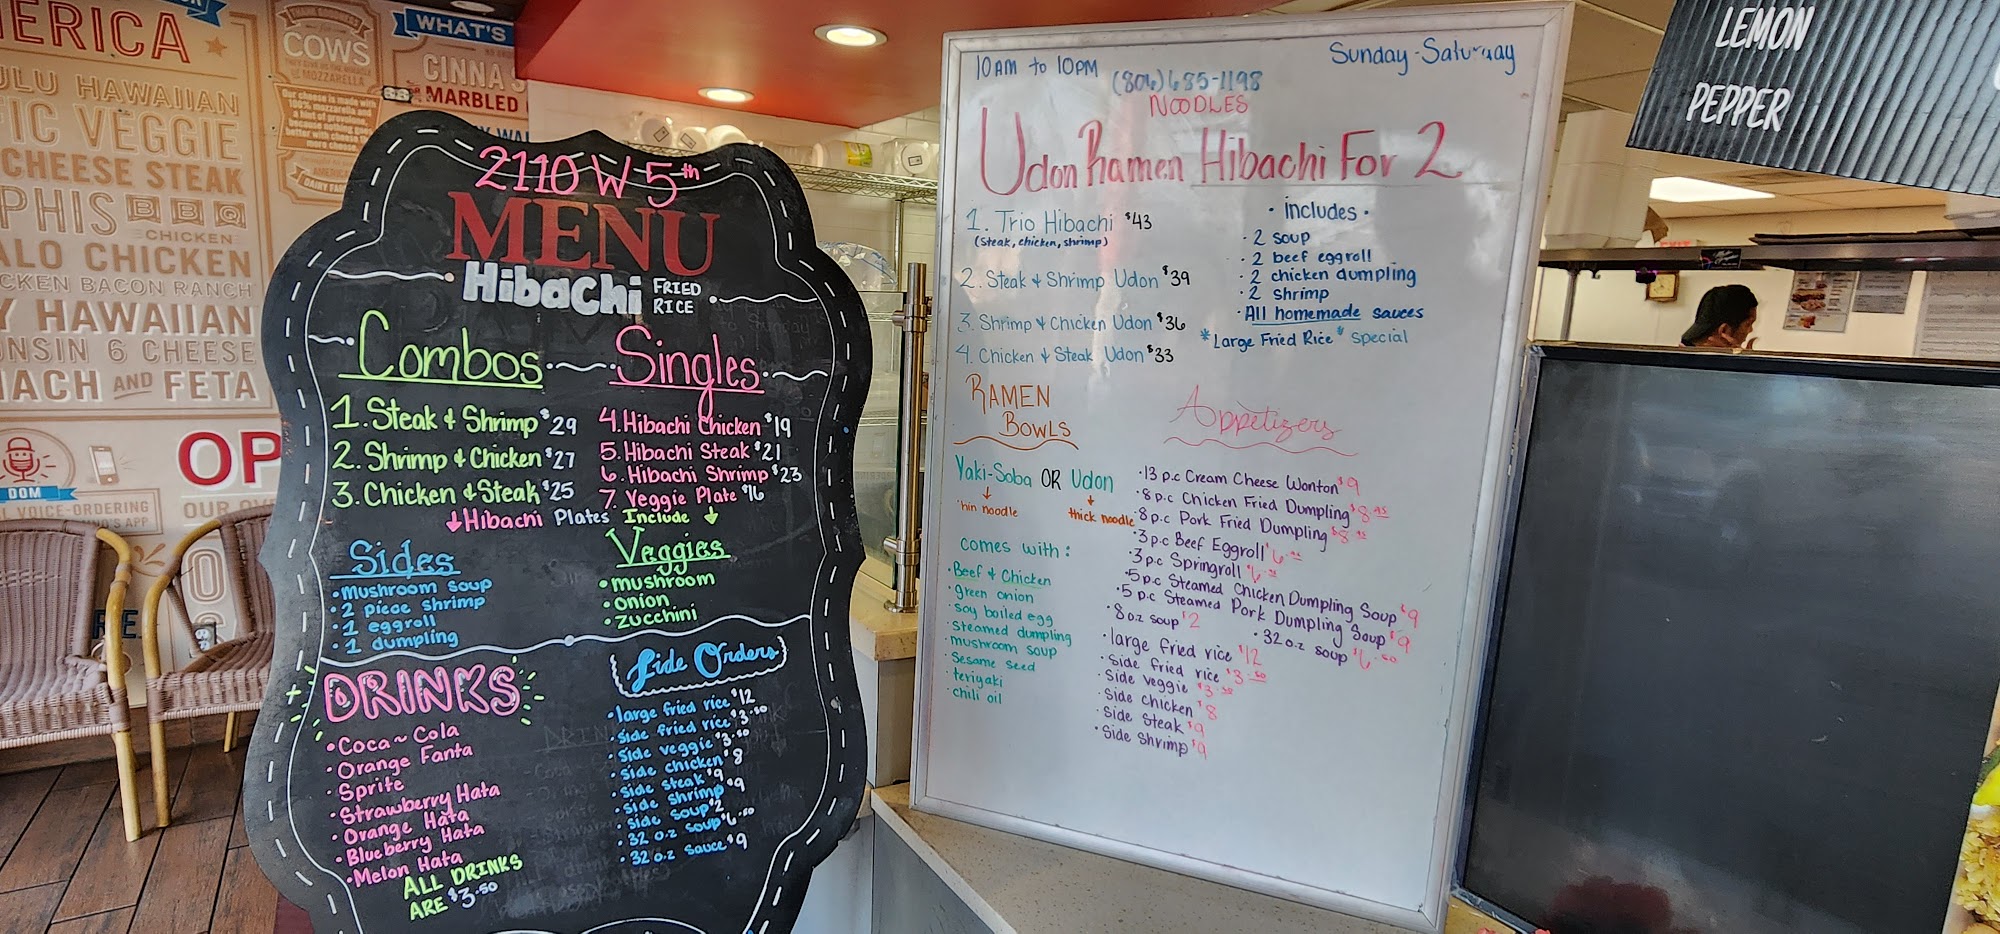 ERICA
HAWAIIAN
VEGGIE
CHEESE STEAK
BBQ
CHICKEN
CHICKEN
BACON RANCH
HAWAIIAN
6 CHEESE
AND FETA
COWS
MOZZARELLA
Our cheese is made with
100% mozzarella and
a hint of provolone
because nothing goes
better with cheese than
more cheese.
WHAT'S
CINNA
MARBLED
OP
DOM
VOICE-ORDERING
APP
OUR
2110 W 5th
MENU
Hibachi FRIED
RICE
Combos
1. Steak & Shrimp $29
2. Shrimp & Chicken $27
3. Chicken & Steak $25
Singles
4. Hibachi Chicken $19
5. Hibachi Steak $21
6. Hibachi Shrimp $23
7. Veggie Plate $16
Hibachi Plates Include
Sides
•mushroom soup
•2 piece shrimp
•1 eggroll
•1 dumpling
Veggies
•mushroom
•onion
•zucchini
DRINKS
•Coca~Cola
•Orange Fanta
•Sprite
•Strawberry Hata
•Orange Hata
•Blueberry Hata
•Melon Hata
ALL DRINKS
ARE $3.50
Side Orders
•large fried rice $12
•side fried rice $3.50
•side veggie $3.50
•side chicken $8
•side steak $9
•side shrimp $9
•side soup $2
•32 o.z soup $6.50
•32 o.z sauce $9
10AM to 10PM
(806)685-1198
Sunday-Saturday
NOODLES
Udon Ramen Hibachi For 2
1. Trio Hibachi $43
(steak, chicken, shrimp)
2. Steak & Shrimp Udon $39
3. Shrimp & Chicken Udon $36
4. Chicken & Steak Udon $33
• includes •
• 2 soup
• 2 beef eggroll
• 2 chicken dumpling
• 2 shrimp
• All homemade sauces
*Large Fried Rice* special
RAMEN
BOWLS
Yaki-Soba OR Udon
hin noodle
thick noodle
comes with:
•Beef & Chicken
•green onion
•soy boiled egg
•steamed dumpling
•mushroom soup
•sesame seed
•teriyaki
•chili oil
Appetizers
•13 p.c Cream Cheese Wonton $9
•8 p.c Chicken Fried Dumpling $8.95
•8 p.c Pork Fried Dumpling $8
•3 p.c Beef Eggroll $6
•3 p.c Springroll $6
•5 p.c Steamed Chicken Dumpling Soup $9
•5 p.c Steamed Pork Dumpling Soup $9
•8 o.z soup $2
•32 o.z soup $6.50
•large fried rice $12
•side fried rice $3.50
•side veggie $3.50
•side chicken $8
•side steak $9
•side shrimp $9
LEMON
PEPPER